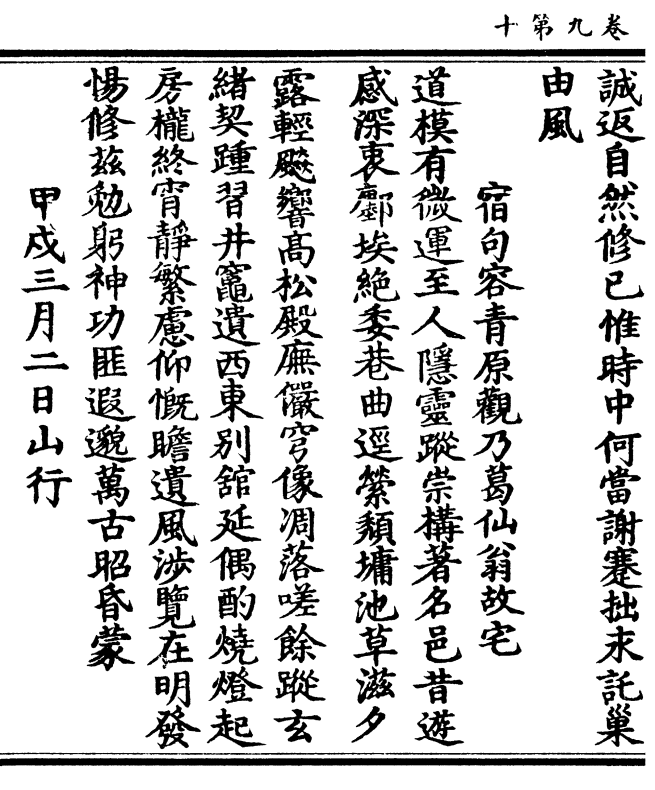 卷九第十
誠返自然修已惟時中何當謝蹇拙求託巢
由風
宿句容青原觀乃葛仙翁故宅
道模有微運至人隱靈蹤崇構著名邑昔遊
感深衷鄽埃絶委巷曲逕縈頽墉池草滋夕
露輕飈響高松殿廡儼穹像凋落嗟餘蹤玄
緒契踵習井竈遺西東別舘延偶酌燒燈起
房櫳終宵靜繁慮仰慨瞻遺風涉覽在明發
惕修兹勉躬神功匪遐邈萬古昭昏蒙
甲戍三月二日山行